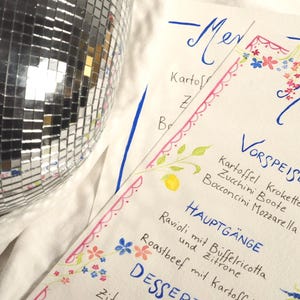 Me
Kartoff
Z
B
VORSPEIS
Kartoffel Krokette
Zucchini Boote
Bocconcini Mozzarella
HAUPTGÄNGE
Ravioli mit Büffelricotta
und Zitrone
Roastbeef mit Kartoff
DESSER
Zit